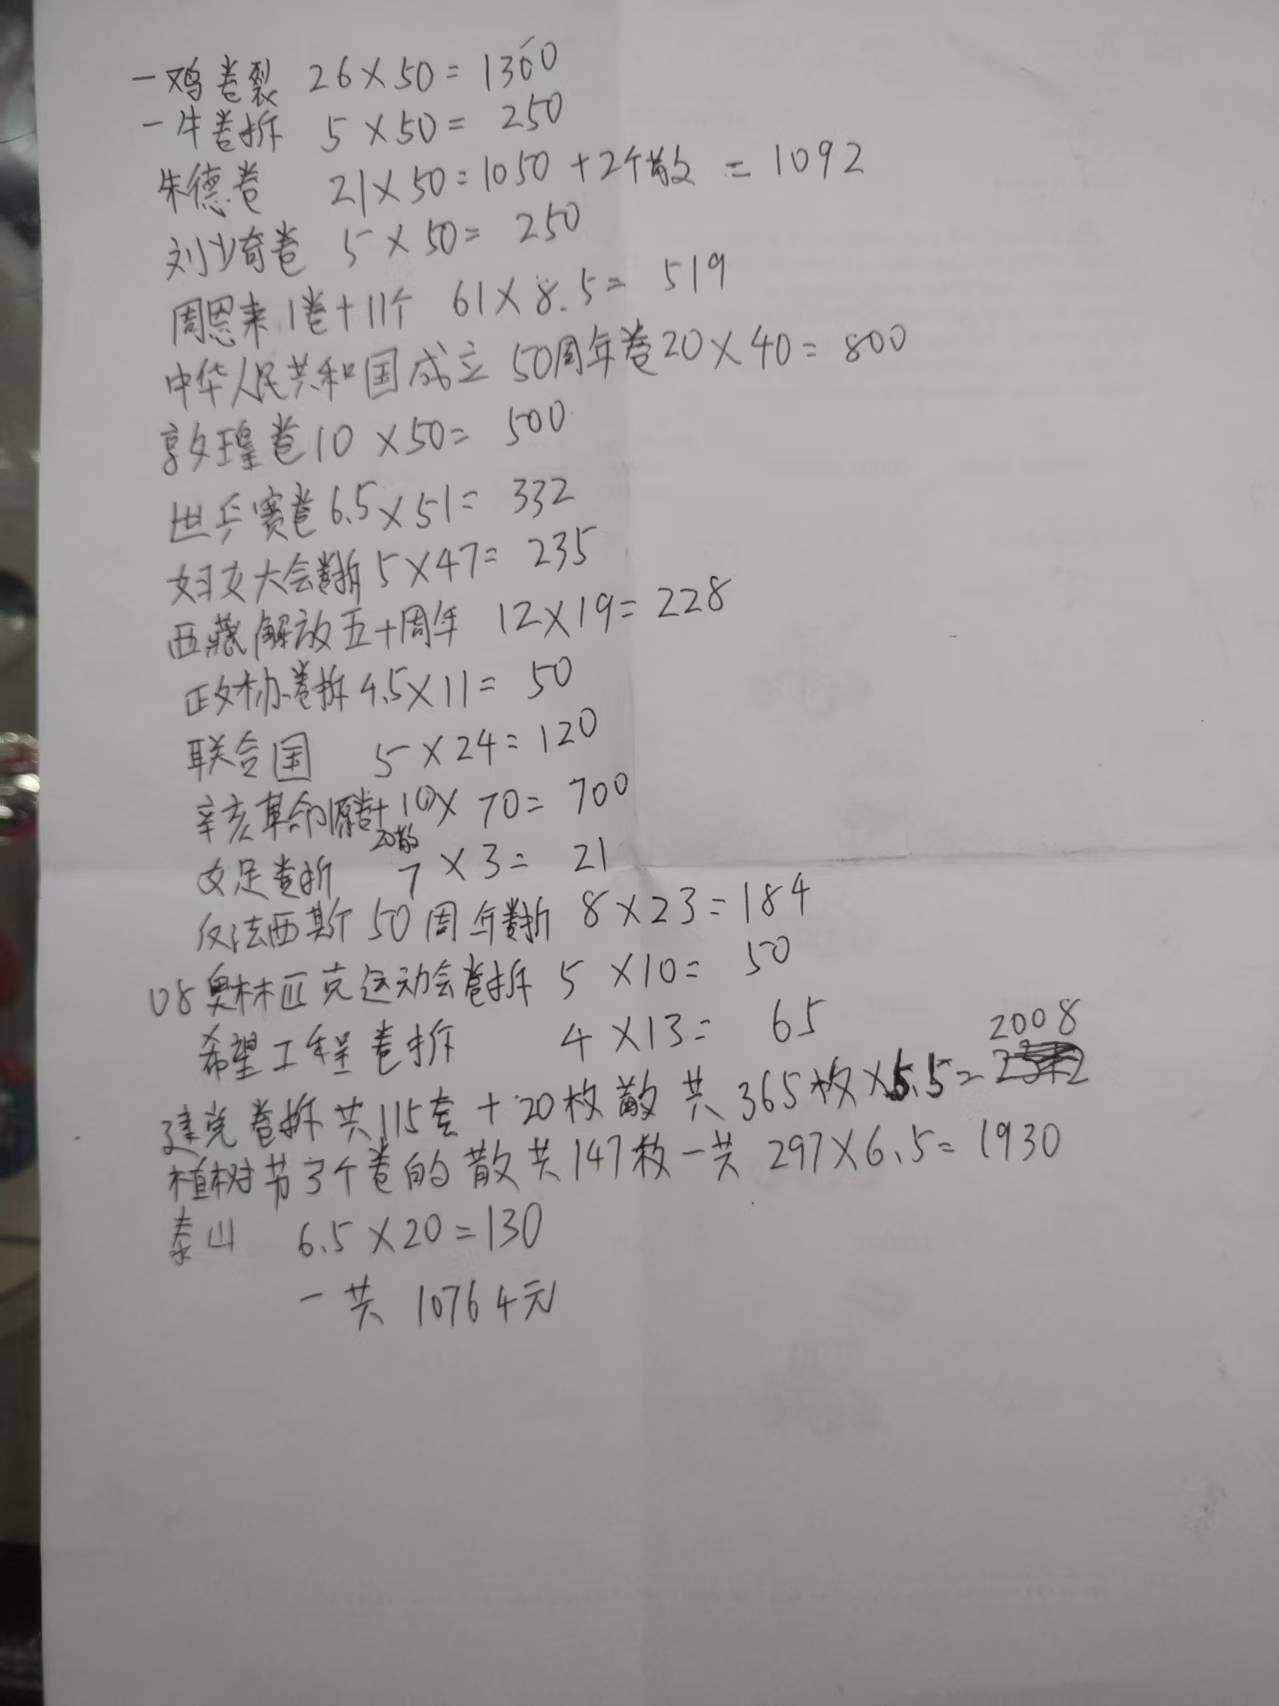 一鸡卷裂 26×50=1300
一牛卷拆 5×50= 250
朱德卷 21×50=1050+2个散 =1092
刘少奇卷 5×50= 250
周恩来1卷+11个 61×8.5= 519
中华人民共和国成立50周年卷20×40=800
敦煌卷10×50= 500
世乒赛卷6.5×51= 332
妇女大会卷拆5×47= 235
西藏解放五十周年 12×19=228
政协卷拆4.5×11= 50
联合国 5×24=120
辛亥革命原卷+ 10×70=700
20散
女足卷拆 7×3= 21
反法西斯50周年卷拆 8×23=184
08奥林匹克运动会卷拆 5×10= 50
希望工程卷拆 4×13= 65
2008
建党卷拆共115套+20枚散共365枚×5.5=
植树节3个卷的散共147枚一共 297×6.5=1930
泰山 6.5×20=130
一共 10764元